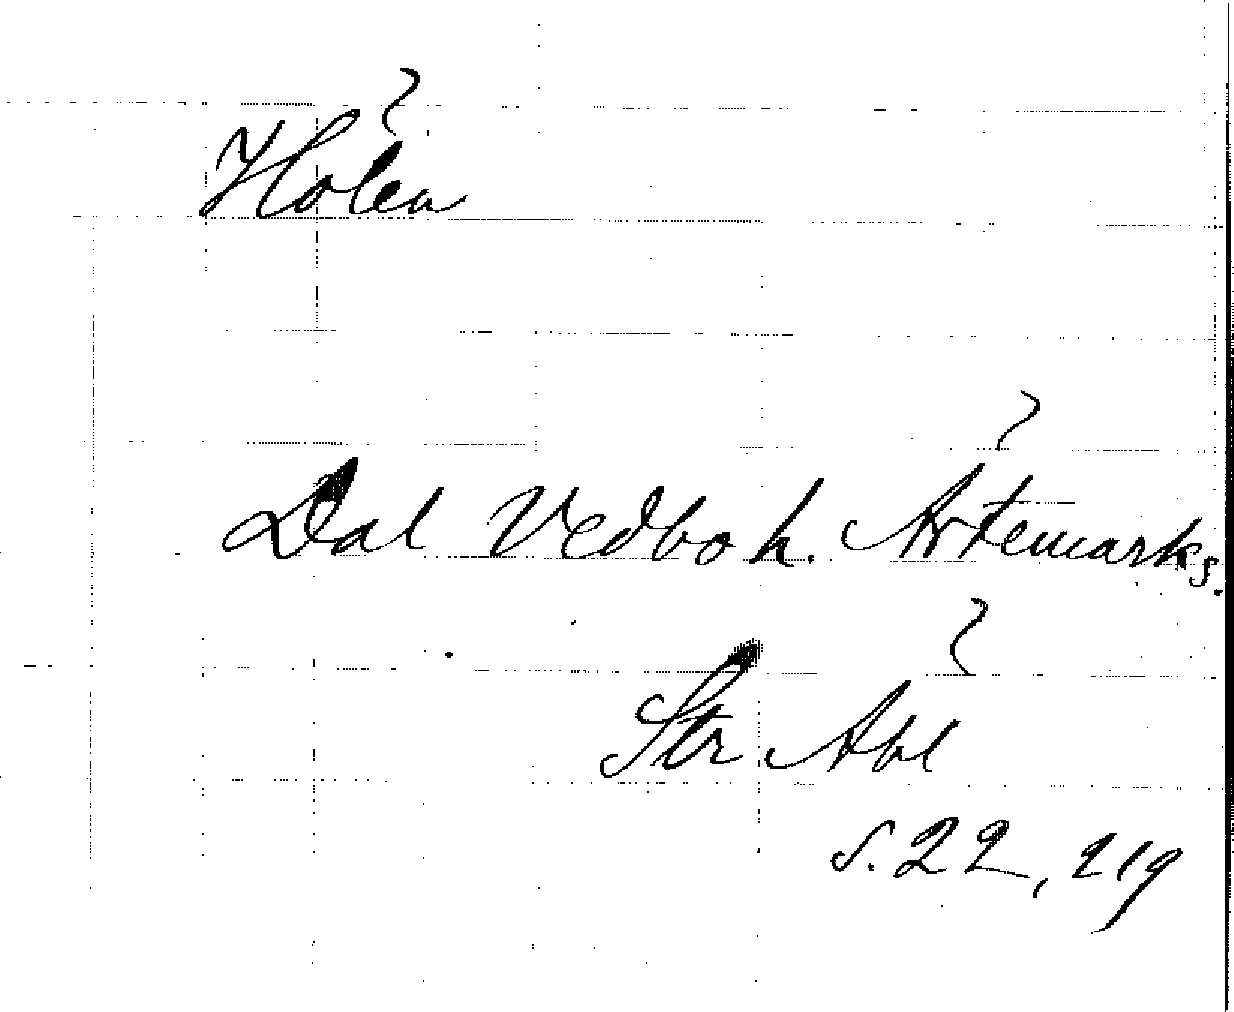 ?
Holen
?
Dal Vedbo h. Artemarks s.
?
Str Abl
s. 22, 219